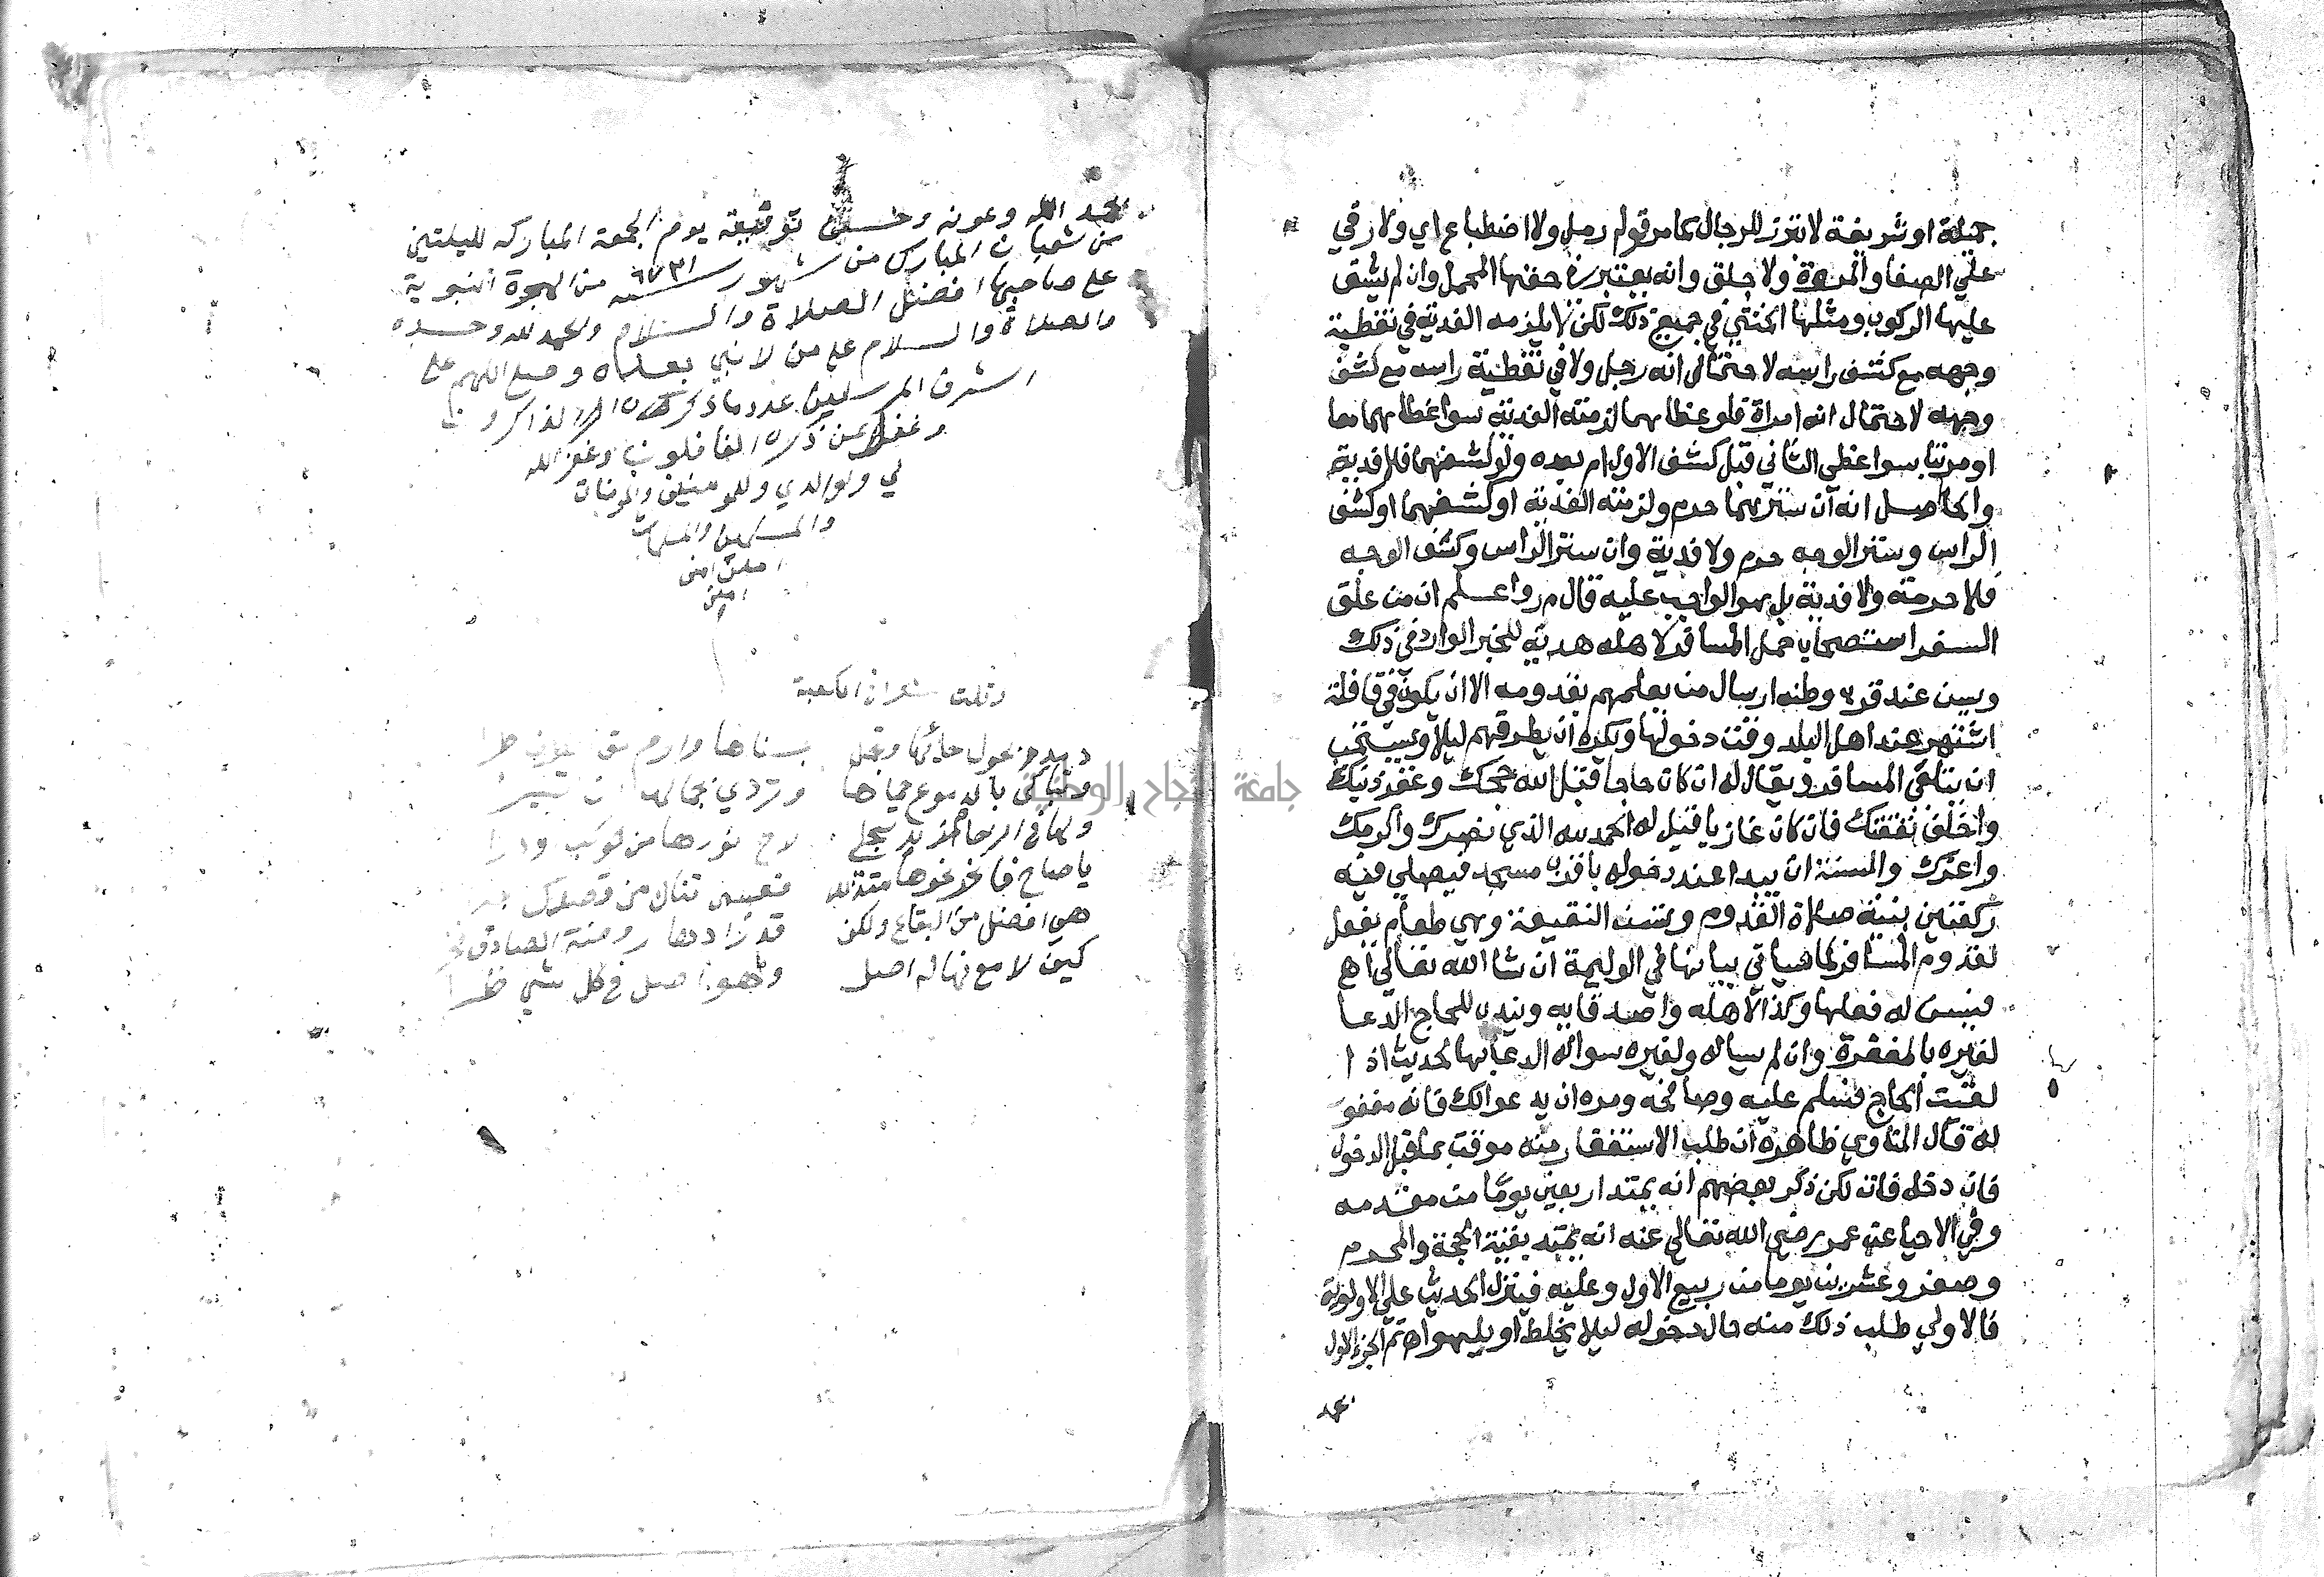 جميلة او شريفة لا تبرز للرجال كما مر قوله رمل ولا اضطباع اي ولا رقي
علي الصفا والمروة ولا حلق وانه يعتبر في حقها المحمل وان لم يشق
عليها الركوب ومثلها الخنثي في جميع ذلك لكن لا يلزمه الفدية في تغطية
وجهه مع كشف راسه لاحتمال انه رجل ولا في تغطية راسه مع كشف
وجهه لاحتمال انه امراة فلو غطاهما لزمته الفدية سوا غطاهما معا
او مرتبا سوا غطي الثاني قبل كشف الاول ام بعده ولو كشفهما فلا فدية
والحاصل انه ان سترهما حرم ولزمته الفدية او كشفهما او كشف
الراس وستر الوجه حرم ولا فدية وان ستر الراس وكشف الوجه
فلا حرمة ولا فدية بل هو الواجب عليه قال م ر واعلم ان من علق
السفر استصحابا حمل المسافر لاهله هدية للخبر الوارد في ذلك
ويسن عند قربه وطنه ارسال من يعلمهم بقدومه الا ان يكون في قافلة
اشتهر عند اهل البلد وقت دخولها ويكره ان يطرقهم ليلا ويستحب
ان يتلقي المسافر ويقال له ان كان حاجا قبل الله حجك وغفر ذنبك
واخلف نفقتك فان كان غازيا قيل له الحمد لله الذي نصرك واكرمك
واعزك والسنة ان يبدا عند دخوله باقرب مسجد فيصلي فيه
ركعتين بنية صلاة القدوم وتسن النقيعة وهي طعام يفعل
لقدوم المسافر لما سياتي بيانها في الوليمة ان شا الله تعالي اه
فيسن له فعلها وكذا لاهله واصدقايه ويندب للحاج الدعا
لغيره بالمغفرة وان لم يساله ولغيره سواله الدعا بها لحديث اذا
لقيت الحاج فسلم عليه وصافحه ومره ان يدعو لك فانه مغفور
له قال المناوي ظاهره ان طلب الاستغفار منه موقت بما قبل الدخول
فان دخل فات لكن ذكر بعضهم انه يمتد اربعين يوما من مقدمه
وفي الاحيا عن عمر رضي الله تعالي عنه انه يمتد بقية الحجة والمحرم
وصفر وعشرين يوما من ربيع الاول وعليه فينزل الحديث علي الاولوية
فالاولي طلب ذلك منه حال دخوله ليلا يخلط او يلهو اه تم الجزء الاول
بحمد الله وعونه وحسن توفيقه يوم الجمعة المباركه لليلتين
من شعبان المبارك من شهور سنه من الهجرة النبوية
علي صاحبها افضل الصلاة والسلام والحمد لله وحده
والصلاة والسلام علي من لا نبي بعده وصلي اللهم علي
اشرف المرسلين عدد ما ذكره الذاكرون
وغفل عن ذكره الغافلون وغفر الله
لي ولوالدي وللمومنين والمومنات
والمسلمين والمسلمات
امين امين
امين
وقلت شعرا في الكعبة
وتباكي بالدموع حماها وتردي بجمالها
لاح نورها من كوكب
يا صاح
هي افضل من البقاع ولكن قد زادها روضة الصادق
كيف لا مع انها له اصل وهو اصل في كل شي
جامعة النجاح الوطنية